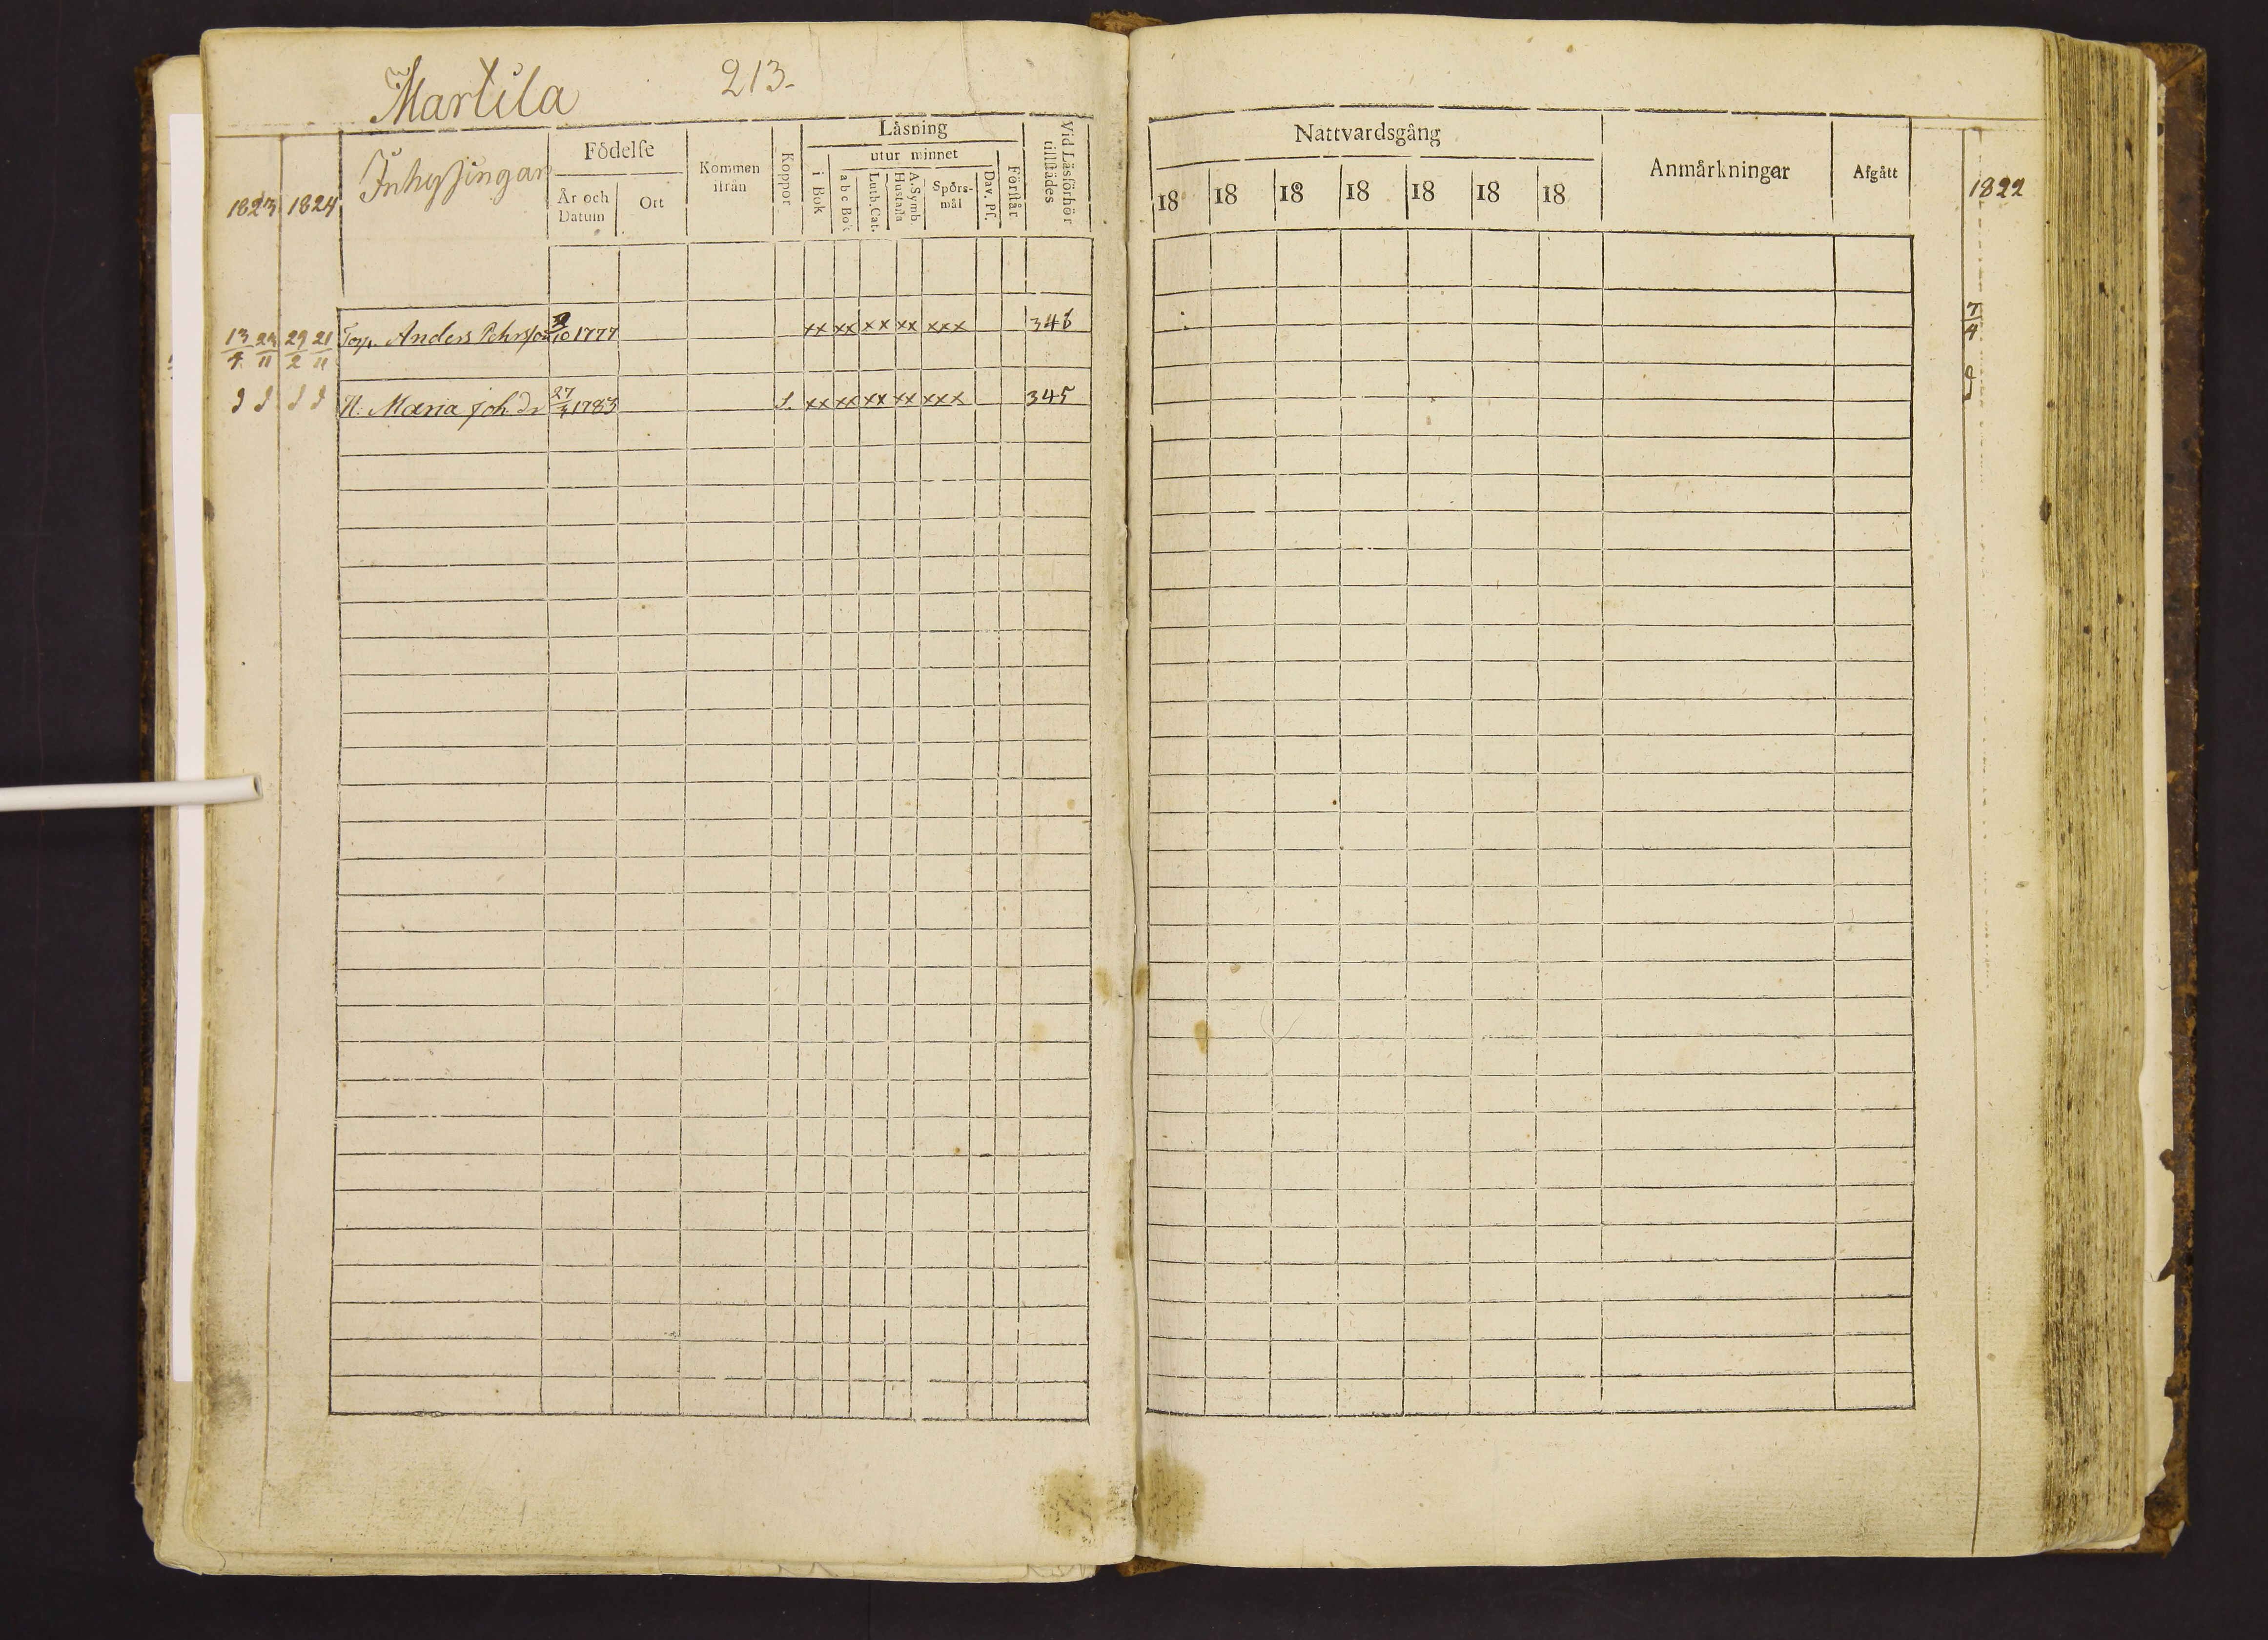 Martila 213.
1823 1824 Inhysingar Födelse År och Datum Ort Kommen ifrån Koppor Läsning i Bok utur minnet a b c Bok Luth. Cat. A. Symb. Hustafla Spörsmål Dav. Ps. Förstår Vid Läsförhör tillstädes
13/4 24/11 29/2 21/11 Torp. Anders Pehrsson /10 1777 xx xx xx xx xxx 346
H. Maria Joh. dr 27/3 1783 S. xx xx xx xx xxx 345
Nattvardsgång Anmärkningar Afgått 1822
18 18 18 18 18 18 18
7/4